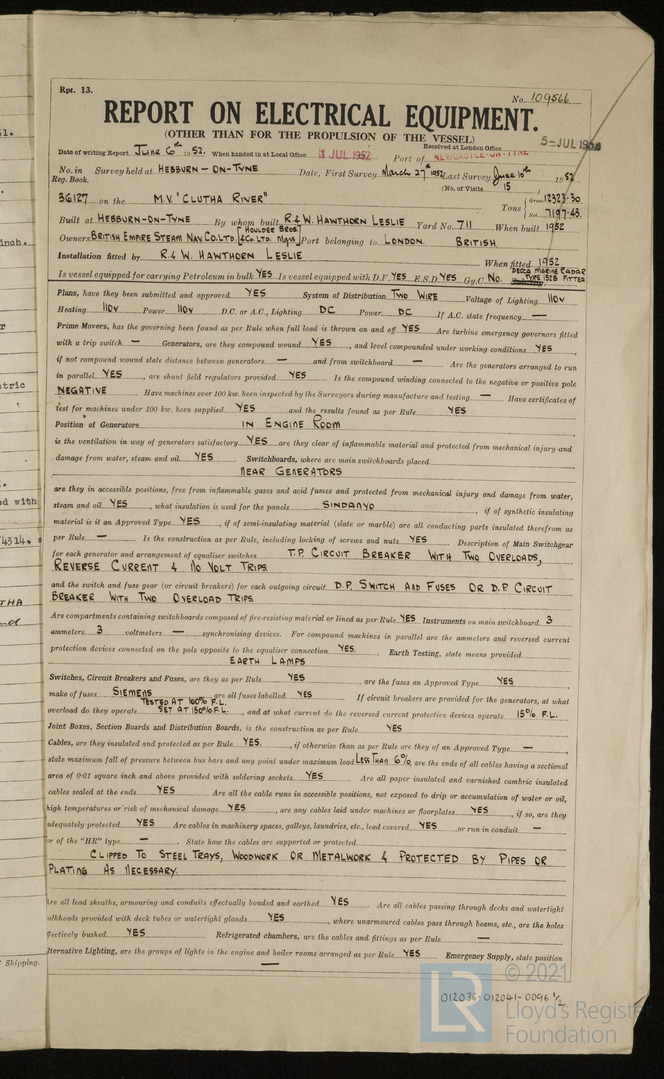 Rpt. 13.
No. 109566
REPORT ON ELECTRICAL EQUIPMENT.
(OTHER THAN FOR THE PROPULSION OF THE VESSEL)
Received at London Office 5-JUL 1952
Date of writing Report June 6th 1952. When handed in at Local Office 1 JUL 1952 Port of NEWCASTLE-ON-TYNE
No. in Survey held at HEBBURN-ON-TYNE Date, First Survey March 27th 1952 Last Survey June 10th 1952
Reg. Book. (No. of Visits 15 )
36127 on the M.V. "CLUTHA RIVER" Tons { Gross 12323.30
Net 7197.43
Built at HEBBURN-ON-TYNE By whom built R. & W. HAWTHORN LESLIE Yard No. 711 When built 1952
Owners BRITISH EMPIRE STEAM NAV. CO. LTD. [HOULDER BROS. & CO. LTD. Mgrs] Port belonging to LONDON BRITISH
Installation fitted by R. & W. HAWTHORN LESLIE When fitted 1952
Is vessel equipped for carrying Petroleum in bulk YES Is vessel equipped with D.F. YES E.S.D. YES Gy.C. NO. DECCA MARINE RADAR TYPE 152B FITTED
Plans, have they been submitted and approved YES System of Distribution TWO WIRE Voltage of Lighting 110V
Heating 110V Power 110V D.C. or A.C., Lighting DC Power DC If A.C. state frequency —
Prime Movers, has the governing been found as per Rule when full load is thrown on and off YES Are turbine emergency governors fitted
with a trip switch — Generators, are they compound wound YES, and level compounded under working conditions YES,
if not compound wound state distance between generators — and from switchboard — Are the generators arranged to run
in parallel YES, are shunt field regulators provided YES Is the compound winding connected to the negative or positive pole
NEGATIVE Have machines over 100 kw. been inspected by the Surveyors during manufacture and testing — Have certificates of
test for machines under 100 kw. been supplied YES and the results found as per Rule YES
Position of Generators IN ENGINE ROOM
is the ventilation in way of generators satisfactory YES are they clear of inflammable material and protected from mechanical injury and
damage from water, steam and oil YES Switchboards, where are main switchboards placed
NEAR GENERATORS
are they in accessible positions, free from inflammable gases and acid fumes and protected from mechanical injury and damage from water,
steam and oil YES, what insulation is used for the panels SINDANYO, if of synthetic insulating
material is it an Approved Type YES, if of semi-insulating material (slate or marble) are all conducting parts insulated therefrom as
per Rule — Is the construction as per Rule, including locking of screws and nuts YES Description of Main Switchgear
for each generator and arrangement of equaliser switches T.P. CIRCUIT BREAKER WITH TWO OVERLOADS,
REVERSE CURRENT & NO VOLT TRIPS
and the switch and fuse gear (or circuit breakers) for each outgoing circuit D.P. SWITCH AND FUSES OR D.P. CIRCUIT
BREAKER WITH TWO OVERLOAD TRIPS
Are compartments containing switchboards composed of fire-resisting material or lined as per Rule YES Instruments on main switchboard 3
ammeters 3 voltmeters — synchronising devices. For compound machines in parallel are the ammeters and reversed current
protection devices connected on the pole opposite to the equaliser connection YES. Earth Testing, state means provided
EARTH LAMPS
Switches, Circuit Breakers and Fuses, are they as per Rule YES, are the fuses an Approved Type YES,
make of fuses SIEMENS are all fuses labelled YES If circuit breakers are provided for the generators, at what
overload do they operate TESTED AT 100% F.L. SET AT 150% F.L., and at what current do the reversed current protective devices operate 15% F.L.
Joint Boxes, Section Boards and Distribution Boards, is the construction as per Rule YES
Cables, are they insulated and protected as per Rule YES, if otherwise than as per Rule are they of an Approved Type —,
state maximum fall of pressure between bus bars and any point under maximum load LESS THAN 6%, are the ends of all cables having a sectional
area of 0·01 square inch and above provided with soldering sockets YES Are all paper insulated and varnished cambric insulated
cables sealed at the ends YES Are all the cable runs in accessible positions, not exposed to drip or accumulation of water or oil,
high temperatures or risk of mechanical damage YES, are any cables laid under machines or floorplates YES, if so, are they
adequately protected YES Are cables in machinery spaces, galleys, laundries, etc., lead covered YES or run in conduit —
or of the "HR" type — State how the cables are supported or protected
CLIPPED TO STEEL TRAYS, WOODWORK OR METALWORK & PROTECTED BY PIPES OR
PLATING AS NECESSARY.
Are all lead sheaths, armouring and conduits effectually bonded and earthed YES Are all cables passing through decks and watertight
ulkheads provided with deck tubes or watertight glands YES, where unarmoured cables pass through beams, etc., are the holes
fectively bushed YES Refrigerated chambers, are the cables and fittings as per Rule —
lternative Lighting, are the groups of lights in the engine and boiler rooms arranged as per Rule YES Emergency Supply, state position
—
inch.
tric
ed with
4314.
THA
Shipping.
012036-012041-0096 1/2
LR
© 2021
Lloyd's Register
Foundation